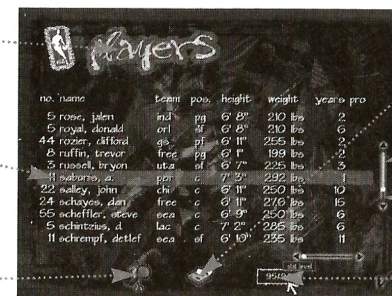 players
no. name team pos. height weight years pro
5 rose, jalen ind pg 6' 8" 210 lbs 2
5 royal, donald orl sf 6' 8" 210 lbs 6
44 rozier, clifford gs pf 6' 11" 255 lbs 2
8 ruffin, trevor free pg 6' 1" 199 lbs 2
3 russell, bryon uta sf 6' 7" 225 lbs 3
11 sabonis, a. por c 7' 3" 292 lbs 1
22 salley, john chi c 6' 11" 250 lbs 10
24 schayes, dan free c 6' 11" 276 lbs 15
55 scheffler, steve sea c 6' 9" 250 lbs 6
5 schintzius, d lac c 7' 2" 285 lbs 6
11 schrempf, detlef sea sf 6' 10" 235 lbs 11